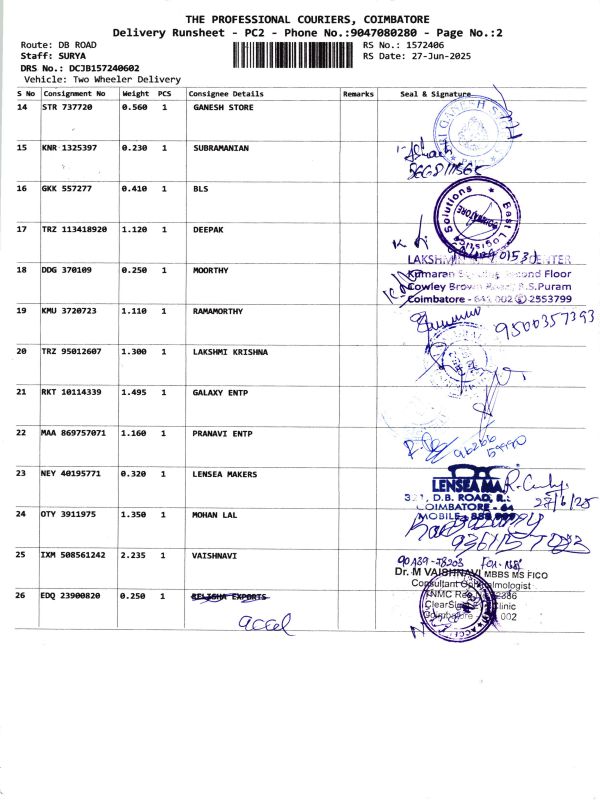 THE PROFESSIONAL COURIERS, COIMBATORE
Delivery Runsheet - PC2 - Phone No.:9047080280 - Page No.:2
Route: DB ROAD
RS No.: 1572406
Staff: SURYA
RS Date: 27-Jun-2025
DRS No.: DCJB157240602
Vehicle: Two Wheeler Delivery
S No Consignment No Weight PCS Consignee Details Remarks Seal & Signature
14 STR 737720 0.560 1 GANESH STORE
15 KNR 1325397 0.230 1 SUBRAMANIAN
16 GKK 557277 0.410 1 BLS
Best Logistics Solutions
17 TRZ 113418920 1.120 1 DEEPAK
LAKSHMI CENTER
18 DDG 370109 0.250 1 MOORTHY
Kumaran Second Floor
Cowley Brown Road, R.S.Puram
Coimbatore - 641 002 2553799
19 KMU 3720723 1.110 1 RAMAMORTHY
9500357393
20 TRZ 95012607 1.300 1 LAKSHMI KRISHNA
21 RKT 10114339 1.495 1 GALAXY ENTP
22 MAA 869757071 1.160 1 PRANAVI ENTP
23 NEY 40195771 0.320 1 LENSEA MAKERS
LENSEA MA
27/6/25
D.B. ROAD, R.
COIMBATORE - 
24 OTY 3911975 1.350 1 MOHAN LAL
MOBILE
25 IXM 508561242 2.235 1 VAISHNAVI
Dr. M VAISHNAVI MBBS MS FICO
Consultant Ophthalmologist
TNMC Reg
26 EDQ 23900820 0.250 1 RELISHA EXPORTS
ClearSight Eye Clinic
Coimbatore 002
accel